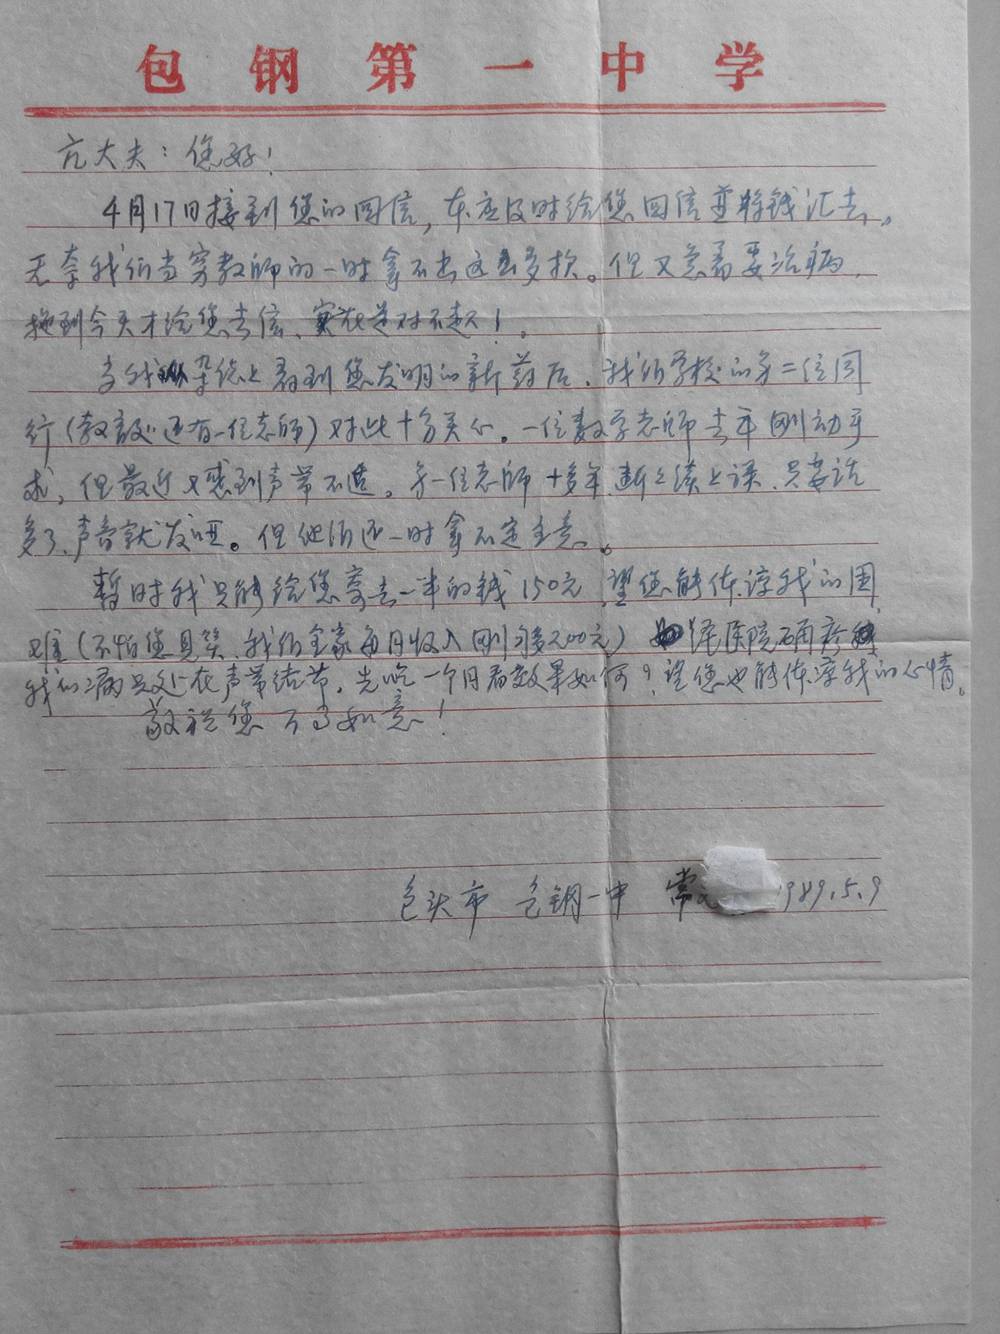 包钢第一中学
亢大夫：您好！
4月17日接到您的回信，本应及时给您回信并将钱汇去，
无奈我们当穷教师的一时拿不出这么多款。但又急需要治病，
拖到今天才给您去信、实在是对不起！。
当我从杂志上看到您发明的新药后、我们学校的另二位同
行（教高 还有一位老师）对此十分关心。一位数学老师去年刚动手
术，但最近又感到声带不适。另一位老师十多年断断续续上课、只要说
多了、声音就发哑。但他们还一时拿不定主意。
暂时我只能给您寄去一半的钱150元，望您能体谅我的困
难（不怕您见笑、我们全家每月收入刚够200元） 经医院确诊
我的病只处在声带结节，先吃一个月看效果如何？望您也能体谅我的心情。
敬祝您 万事如意！
包头市 包钢一中 常 1989.5.9